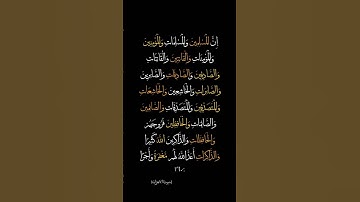 إن المسلمين والمسلمات والمؤمنين
والمؤمنات والقانتين والقانتات
والصادقين والصادقات والصابرين
والصابرات والخاشعين والخاشعات
والمتصدقين والمتصدقات والصائمين
والصائمات والحافظين فروجهم
والحافظات والذاكرين الله كثيرا
والذاكرات أعد الله لهم مغفرة وأجرا